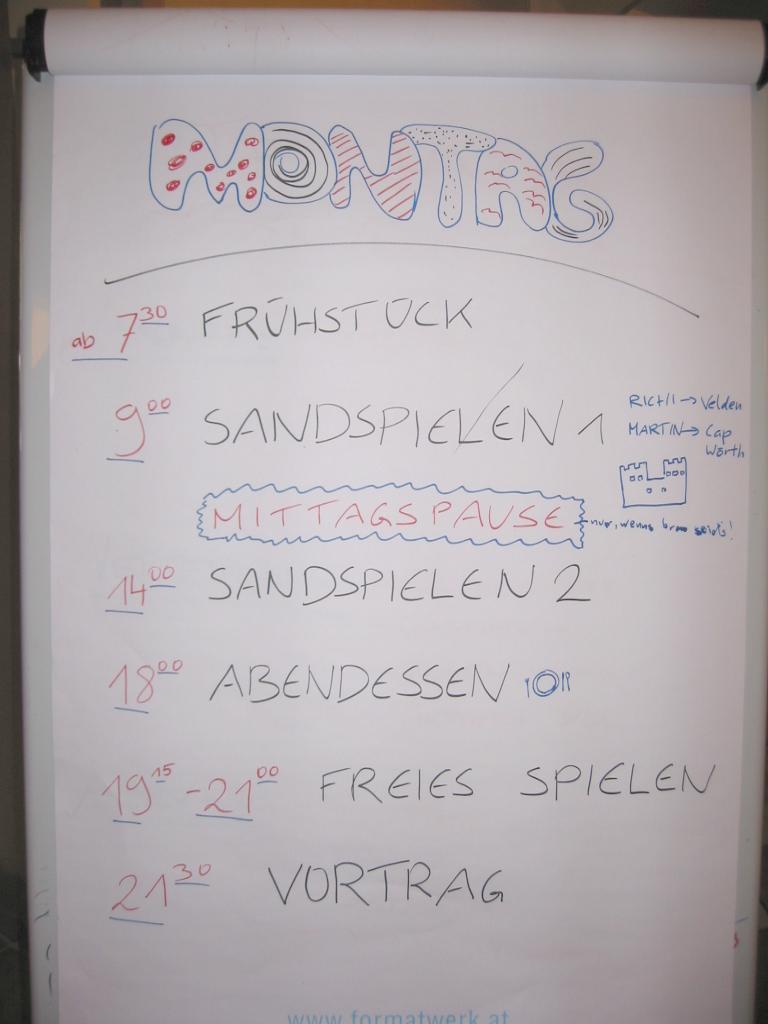 MONTAG
ab 7 30 FRÜHSTÜCK
9 00 SANDSPIELEN 1
RICHI → Velden
MARTIN → Cap
Wörth
MITTAGSPAUSE
nur, wenns brav seids!
14 00 SANDSPIELEN 2
18 00 ABENDESSEN
19 15 - 21 00 FREIES SPIELEN
21 30 VORTRAG
www.formatwerk.at